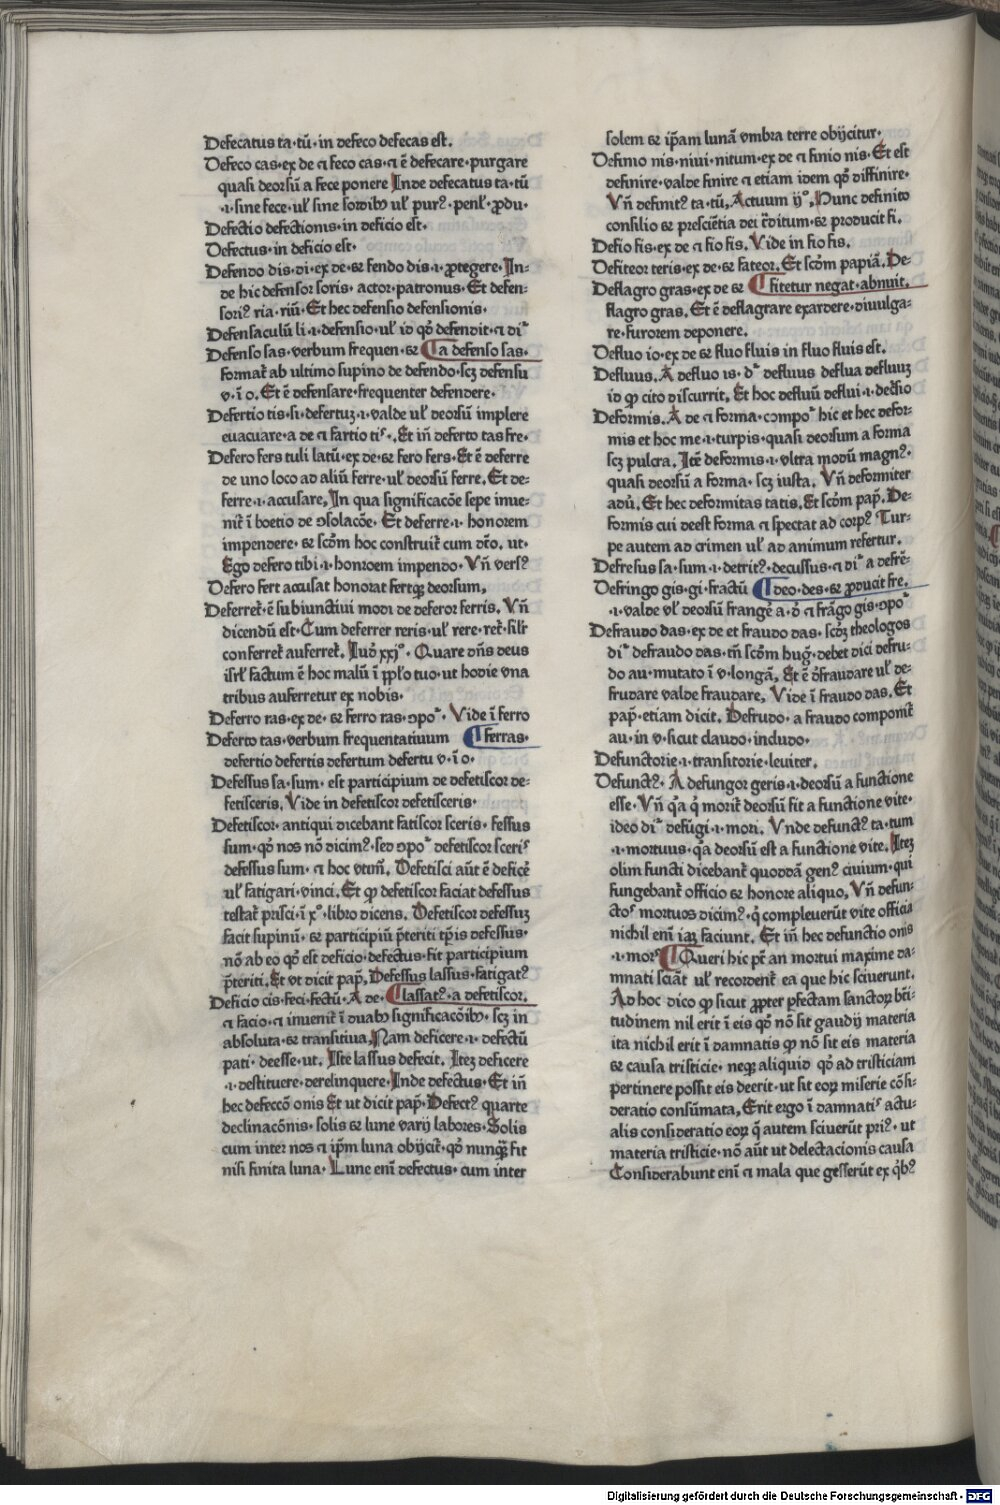 Defecatus ta·tū· in defeco defecas est.
Defeco cas·ex de ⁊ feco cas·⁊ ē defecare·purgare
quasi deorsū a fece ponere Inde defecatus ta·tū
·i·sine fece·ul' sine sordibꝰ ul' purꝰ·penl'·ꝓdu·
Defectio defectionis·in deficio est·
Defectus·in deficio est·
Defendo dis·di·ex de·⁊ fendo dis·i·ꝓtegere·In-
de hic defensor soris·actor·patronus·Et defen-
soriꝰ ria·riū·Et hec defensio defensionis·
Defensaculū li·i·defensio·ul' id qđ defendit·⁊ di
Defenso sas·verbum frequen·⁊ ¶a defenso sas·
format̄ ab ultimo supino de defendo·scꝫ defensu
v·ī o·Et ē defensare·frequenter defendere·
Defertio tis·si·defertuꝫ·i·valde ul' deorsū implere
euacuare·a de ⁊ fartio tiˢ·Et in̄ deferto tas fre·
Defero fers tuli latū·ex de·⁊ fero fers·Et ē deferre
de uno loco ad aliū ferre·ul' deorsū ferre·Et de-
ferre·i·accusare, In qua significacōe sepe inue-
nit̄ ī boetio de ↄsolacōe· Et deferre·i·honorem
impendere·⁊ scđm hoc construit̄ cum dt̄o·ut·
Ego defero tibi·i·honroem impendo·Vn̄ versꝰ
Defero fert accusat honorat fertqꝫ deorsum,
Deferret̄·ē subiunctiui modi de deferor ferris, Vn̄
dicendū est·Cum deferrer reris·ul' rere·ret̄·silr
conferret̄ auferret̄, Iudꝰ xxjº·Quare dn̄s deus
isrl' factum ē hoc malū ī ppl'o tuo·ut hodie vna
tribus auferretur ex nobis·
Deferro ras·ex de·⁊ ferro ras·ↄpoᵃ·Vide ī ferro
Deferto tas·verbum frequentatiuum ¶ferras·
defertio defertis defertum defertu v·ī o·
Defessus sa·sum· est participium de defetiscor de-
fetisceris, Vide in defetiscor defetisceris·
Defetiscor·antiqui dicebant fatiscor sceris·fessus
sum·qđ nos nō dicimꝰ·sed ↄpoᵃ defetiscor sceriˢ
defessus sum·⁊ hoc vtm̄, Defetisci aūt ē deficē
ul' fatigari·vinci·Et qꝫ defetiscor faciat defessus
testat̄ prisci·ī xº·libro dicens, Defetiscor defessuꝫ
facit supinū·⁊ participiū p̄teriti tp̄is defessus·
nō ab eo qđ est deficio·defectus·fit participium
p̄teriti·Et vt dicit pap̄, Defessus lassus·fatigatꝰ
Deficio cis·feci·fectū·A de·¶lassatꝰ·a defetiscor,
⁊ facio·⁊ inuenit̄ ī duabꝰ significacōibꝰ·scꝫ in
absoluta·⁊ transitiua, Nam deficere·i·defectū
pati·deesse·ut, Iste lassus defecit, Iteꝫ deficere
·i·destituere·derelinquere·Inde defectus·Et in̄
hec defeccō onis Et ut dicit pap̄·Defectꝰ quarte
declinacōnis·solis ⁊ lune varij labores·Solis
cum inter nos ⁊ ip̄m luna obijcit̄·qđ nunqꝫ fit
nisi finita luna· Lune eni defectus·cum inter
solem ⁊ ip̄am lunā vmbra terre obijcitur·
Definio nis·niui·nitum·ex de ⁊ finio nis·Et est
definire·valde finire ⁊ etiam idem qđ diffinire·
Vn̄ definitꝰ ta·tū, Actuum ijº, Hunc definito
consilio ⁊ presciētia dei t̄ditum·⁊ producit fi.
Defio fis·ex de ⁊ fio fis, Vide in fio fis,
Defiteor teris·ex de·⁊ fateor, Et scđm papiā, De-
Deflagro gras·ex de ⁊ ¶fitetur negat·abnuit,
flagro gras, Et ē deflagrare exardere·diuulga-
re·furorem deponere,
Defluo io·ex de ⁊ fluo fluis in fluo fluis est,
Defluus, A defluo is·dʳ defluus deflua defluuꝫ
id qꝫ cito discurrit, Et hoc defluū deflui·i·decīsio
Deformis, A de ⁊ forma·compoᵃ hic et hec defor-
mis et hoc me·i·turpis·quasi deorsum a forma
scꝫ pulcra, Itē deformis·i·vltra modū magnꝰ·
quasi deorsū a forma·scꝫ iusta, Vn̄ deformiter
adū, Et hec deformitas tatis, Et scđm pap̄, De-
formis cui deest forma ⁊ spectat ad corpꝰ Tur-
pe autem ad crimen ul' ad animum refertur,
Defresus sa·sum·i·detritꝰ·decussus·⁊ diᵃ a defrē-
Defringo gis·gi·fractū ¶deo·des·⁊ ꝓducit fre,
·i·valde vl' deorsū frangē a·đ ⁊ frāgo gis·ↄpoᵃ
Defraudo das·ex de et fraudo das·scđꝫ theologos
diʳ defraudo das·tn̄ scđm huḡ·debet dici defru-
do au·mutato ī v·longā, Et ē defraudare ul' de-
frudare valde fraudare, Vide ī fraudo das, Et
pap̄·etiam dicit, Defrudo·a fraudo componit̄
au·in v·sicut claudo·includo·
Defunctorie·i·transitorie·leuiter,
Defunctꝰ·A defungor geris·i·deorsū a functione
esse·Vn̄ qꝛa q̄ morit̄ deorsū fit a functione vite·
ideo diʳ defūgi·i·mori, Vnde defunctꝰ ta·tum
·i·mortuus·qꝛa deorsū est a functione vite, Iteꝫ
olim functi dicebant̄ quoddā genꝰ ciuium·qui
fungebant̄ officio ⁊ honore aliquo, Vn̄ defun-
ctoˢ mortuos dicimꝰ·q̄ compleuerūt vite officia
nichil eni iaꝫ faciunt, Et in̄ hec defunctio onis
·i·morˢ ¶Queri hic pt̄ an mortui maxime da-
mnati sciāt ul' recordent̄ ea que hic sciuerunt,
Ad hoc dico qꝫ sicut ꝓpter pfectam sanctoꝝ bt̄i-
tudinem nil erit ī eis qđ nō sit gaudij materia
ita nichil erit ī damnatis qꝫ nō sit eis materia
⁊ causa tristicie·neqꝫ aliquid qđ ad tristiciam
pertinere possit eis deerit·ut sit eoꝝ miserie cōsi-
deratio consūmata, Erit ergo ī damnatiˢ actu-
alis consideratio eoꝝ q̄ autem sciuerūt priꝰ·ut
materia tristicie·nō aūt ut delectacionis causa
Considerabunt eni ⁊ mala que gesserūt ex q̄bꝰ
Digitalisierung gefördert durch die Deutsche Forschungsgemeinschaft - DFG